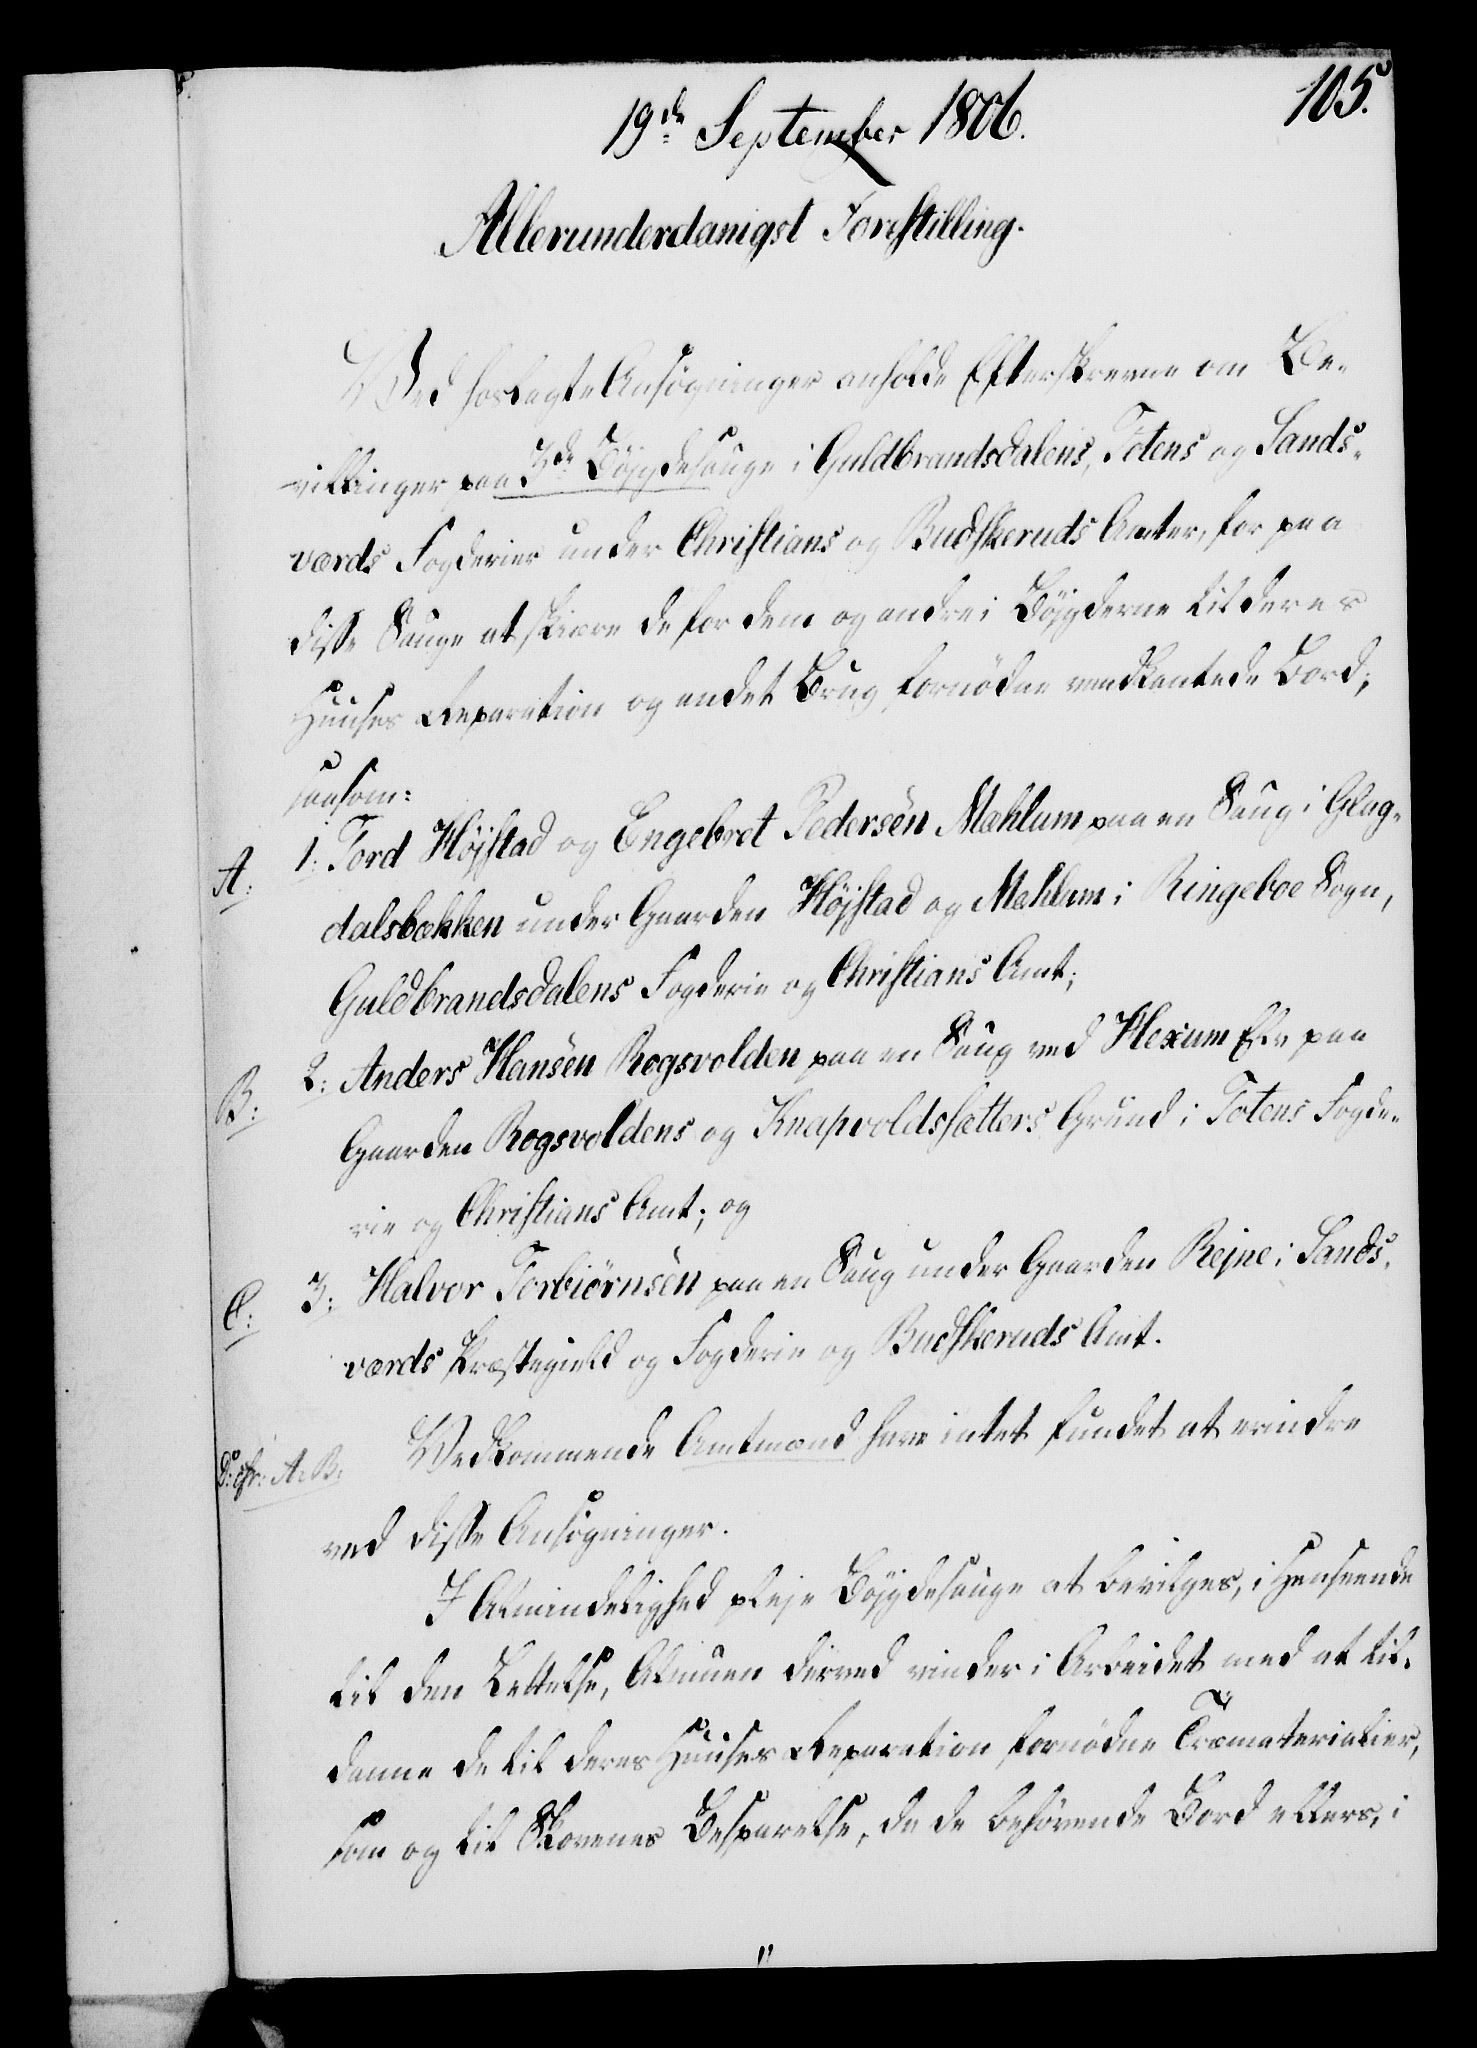 105.
19de September 1806.
Allerunderdanigst Forestilling.
Ved hoslagte Ansøgninger anholde Efterskrevne om Be-
villinger paa 3de Bøjgdesauge i Guldbrandsdalens, Totens og Sands-
værds Fogderier under Christians og Budskeruds Amter, for paa
disse Sauge at skiære de for dem og andre i Bøjgderne til deres
Huuses Reparation og andet Brug fornødne vandkantede Bord;
saasom:
A: 1: Tord Højstad og Engebret Pedersen Mæhlum paa en Saug i Glag-
dalsbækken under Gaarden Højstad og Mæhlum i Ringeboe Sogn,
Guldbrandsdalens Fogderie og Christians Amt;
B: 2: Anders Hansen Rogsvolden paa en Saug ved Hexum Elv paa
Gaarden Rogsvoldens og Knapvoldssætters Grund i Totens Fogde-
rie og Christians Amt; og
C: 3: Halvor Torbiørnsen paa en Saug under Gaarden Rejne i Sands-
værds Præstegield og Fogderie og Budskeruds Amt.
D: cfr: A: B: Vedkommende Amtmænd have intet fundet at erindre
ved disse Ansøgninger.
I Almindelighed pleje Bøjgdesauge at bevilges, i Henseende
til den Lettelse, Almuen derved vinder i Arbeidet med at til-
danne de til deres Huuses Reparation fornødne Træmaterialier,
som og til Skovenes Besparelse, da de behøvende Bord ellers, i